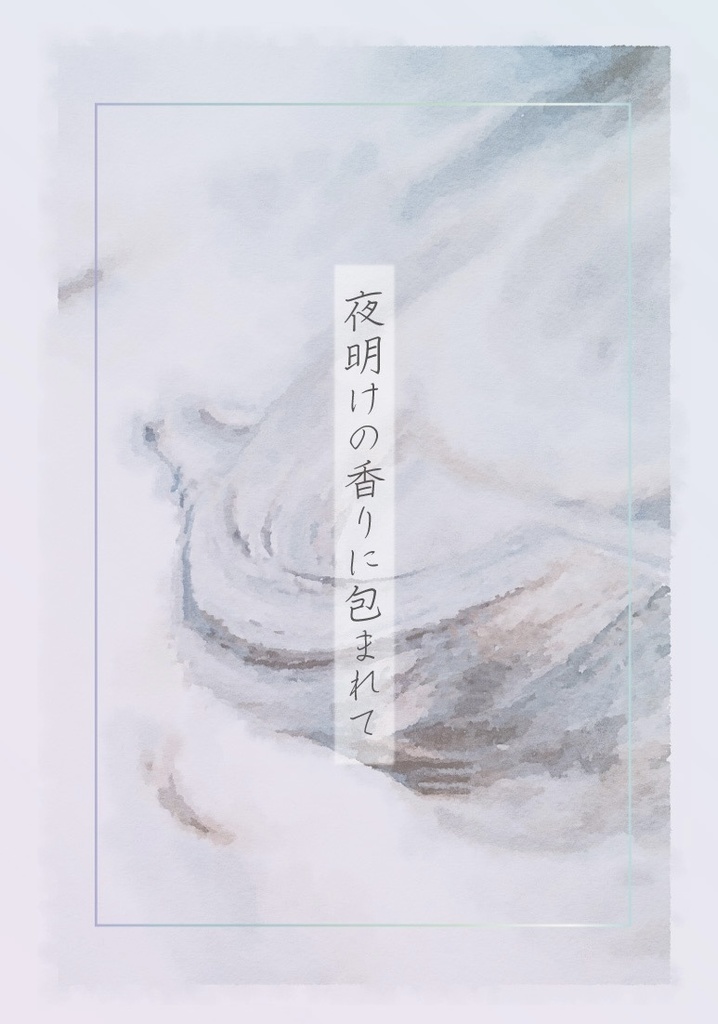 夜明けの香りに包まれて